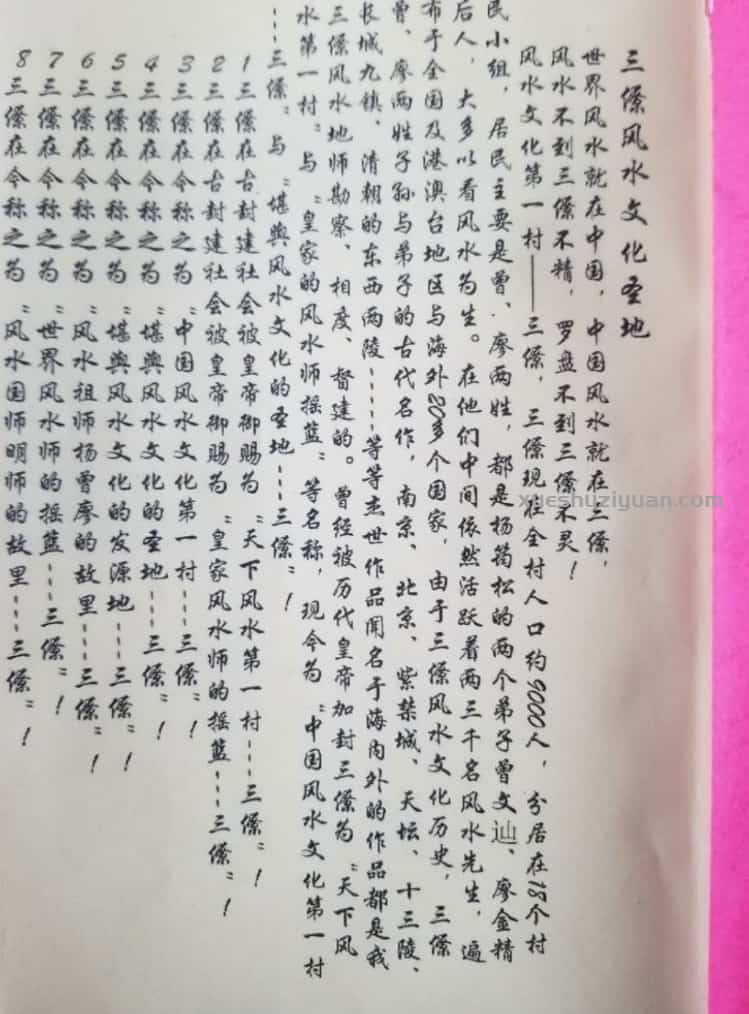 三僚风水文化圣地
世界风水就在中国,中国风水就在三僚,
风水不到三僚不精,罗盘不到三僚不灵!
风水文化第一村——三僚,三僚现在全村人口约9000人,分居在18个村
民小组,居民主要是曾、廖两姓,都是杨筠松的两个弟子曾文辿、廖金精
后人,大多以看风水为生。在他们中间依然活跃着两三千名风水先生,遍
布于全国及港澳台地区与海外20多个国家,由于三僚风水文化历史,三僚
曾、廖两姓子孙与弟子的古代名作,南京、北京、紫禁城、天坛、十三陵、
长城九镇、清朝的东西两陵……等等杰世作品闻名于海内外的作品都是我
三僚风水地师勘察、相度、督建的。曾经被历代皇帝加封三僚为“天下风
水第一村”与“皇家的风水师摇篮”等名称,现今为“中国风水文化第一村
……三僚”与“堪舆风水文化的圣地……三僚”!
1三僚在古封建社会被皇帝御赐为“天下风水第一村……三僚”!
2三僚在古封建社会被皇帝御赐为“皇家风水师的摇篮……三僚”!
3三僚在今称之为“中国风水文化第一村……三僚”!
4三僚在今称之为“堪舆风水文化的圣地……三僚”!
5三僚在今称之为“堪舆风水文化的发源地……三僚”!
6三僚在今称之为“风水祖师杨曾廖的故里……三僚”!
7三僚在今称之为“世界风水师的摇篮……三僚”!
8三僚在今称之为“风水国师明师的故里……三僚”!
xueshuziyuan.com